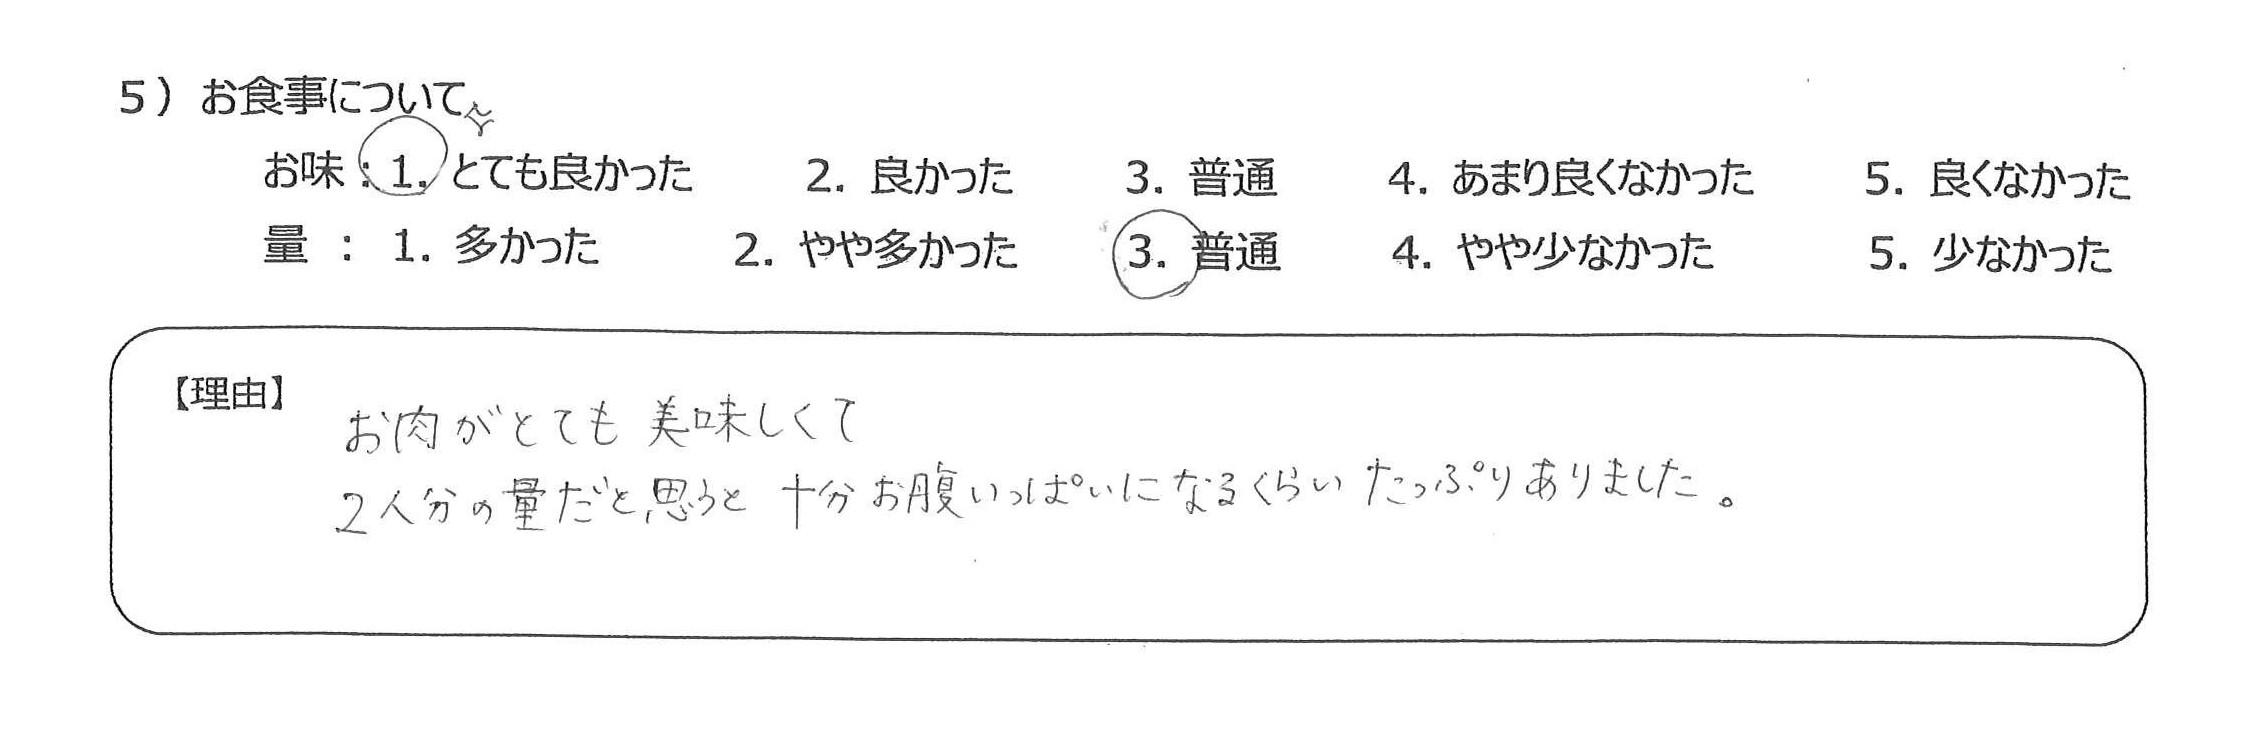 5）お食事について
お味：1. とても良かった 2. 良かった 3. 普通 4. あまり良くなかった 5. 良くなかった
量：1. 多かった 2. やや多かった 3. 普通 4. やや少なかった 5. 少なかった
【理由】
お肉がとても美味しくて
2人分の量だと思うと十分お腹いっぱいになるくらいたっぷりありました。